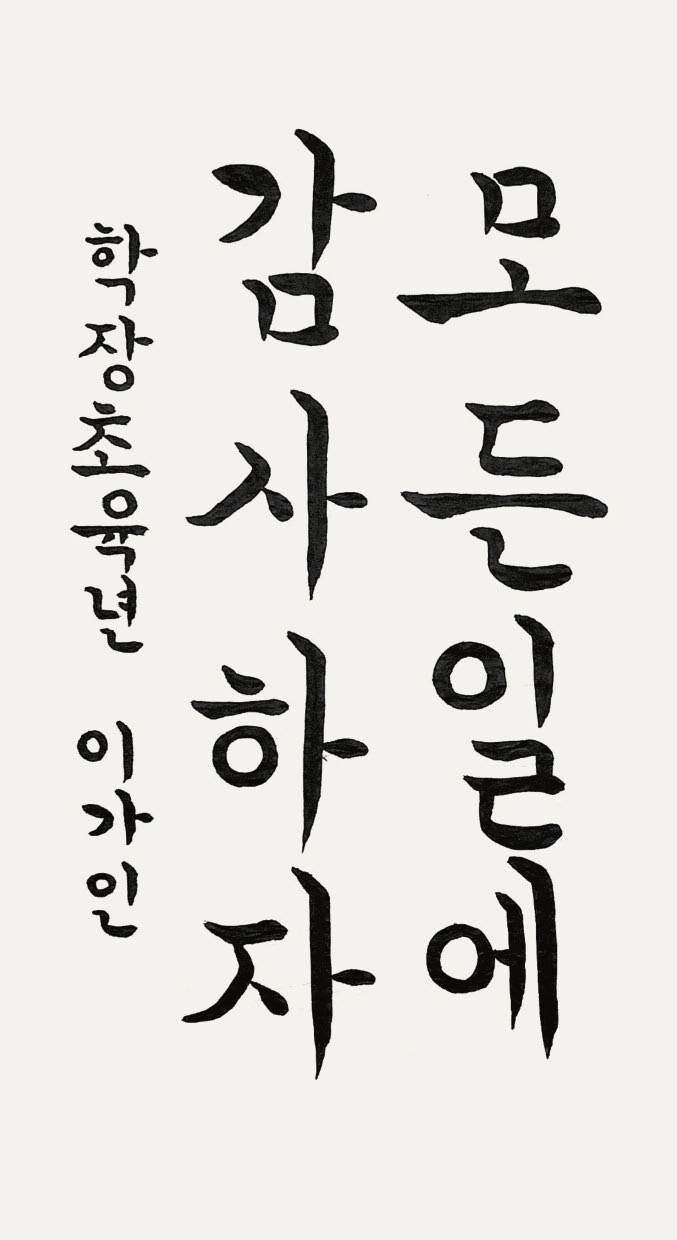 모든일에
감사하자
학장초육년 이가인